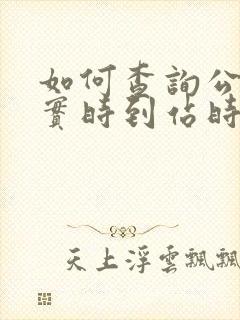 如何查詢公
實時到佔時
天上浮雲飄飄